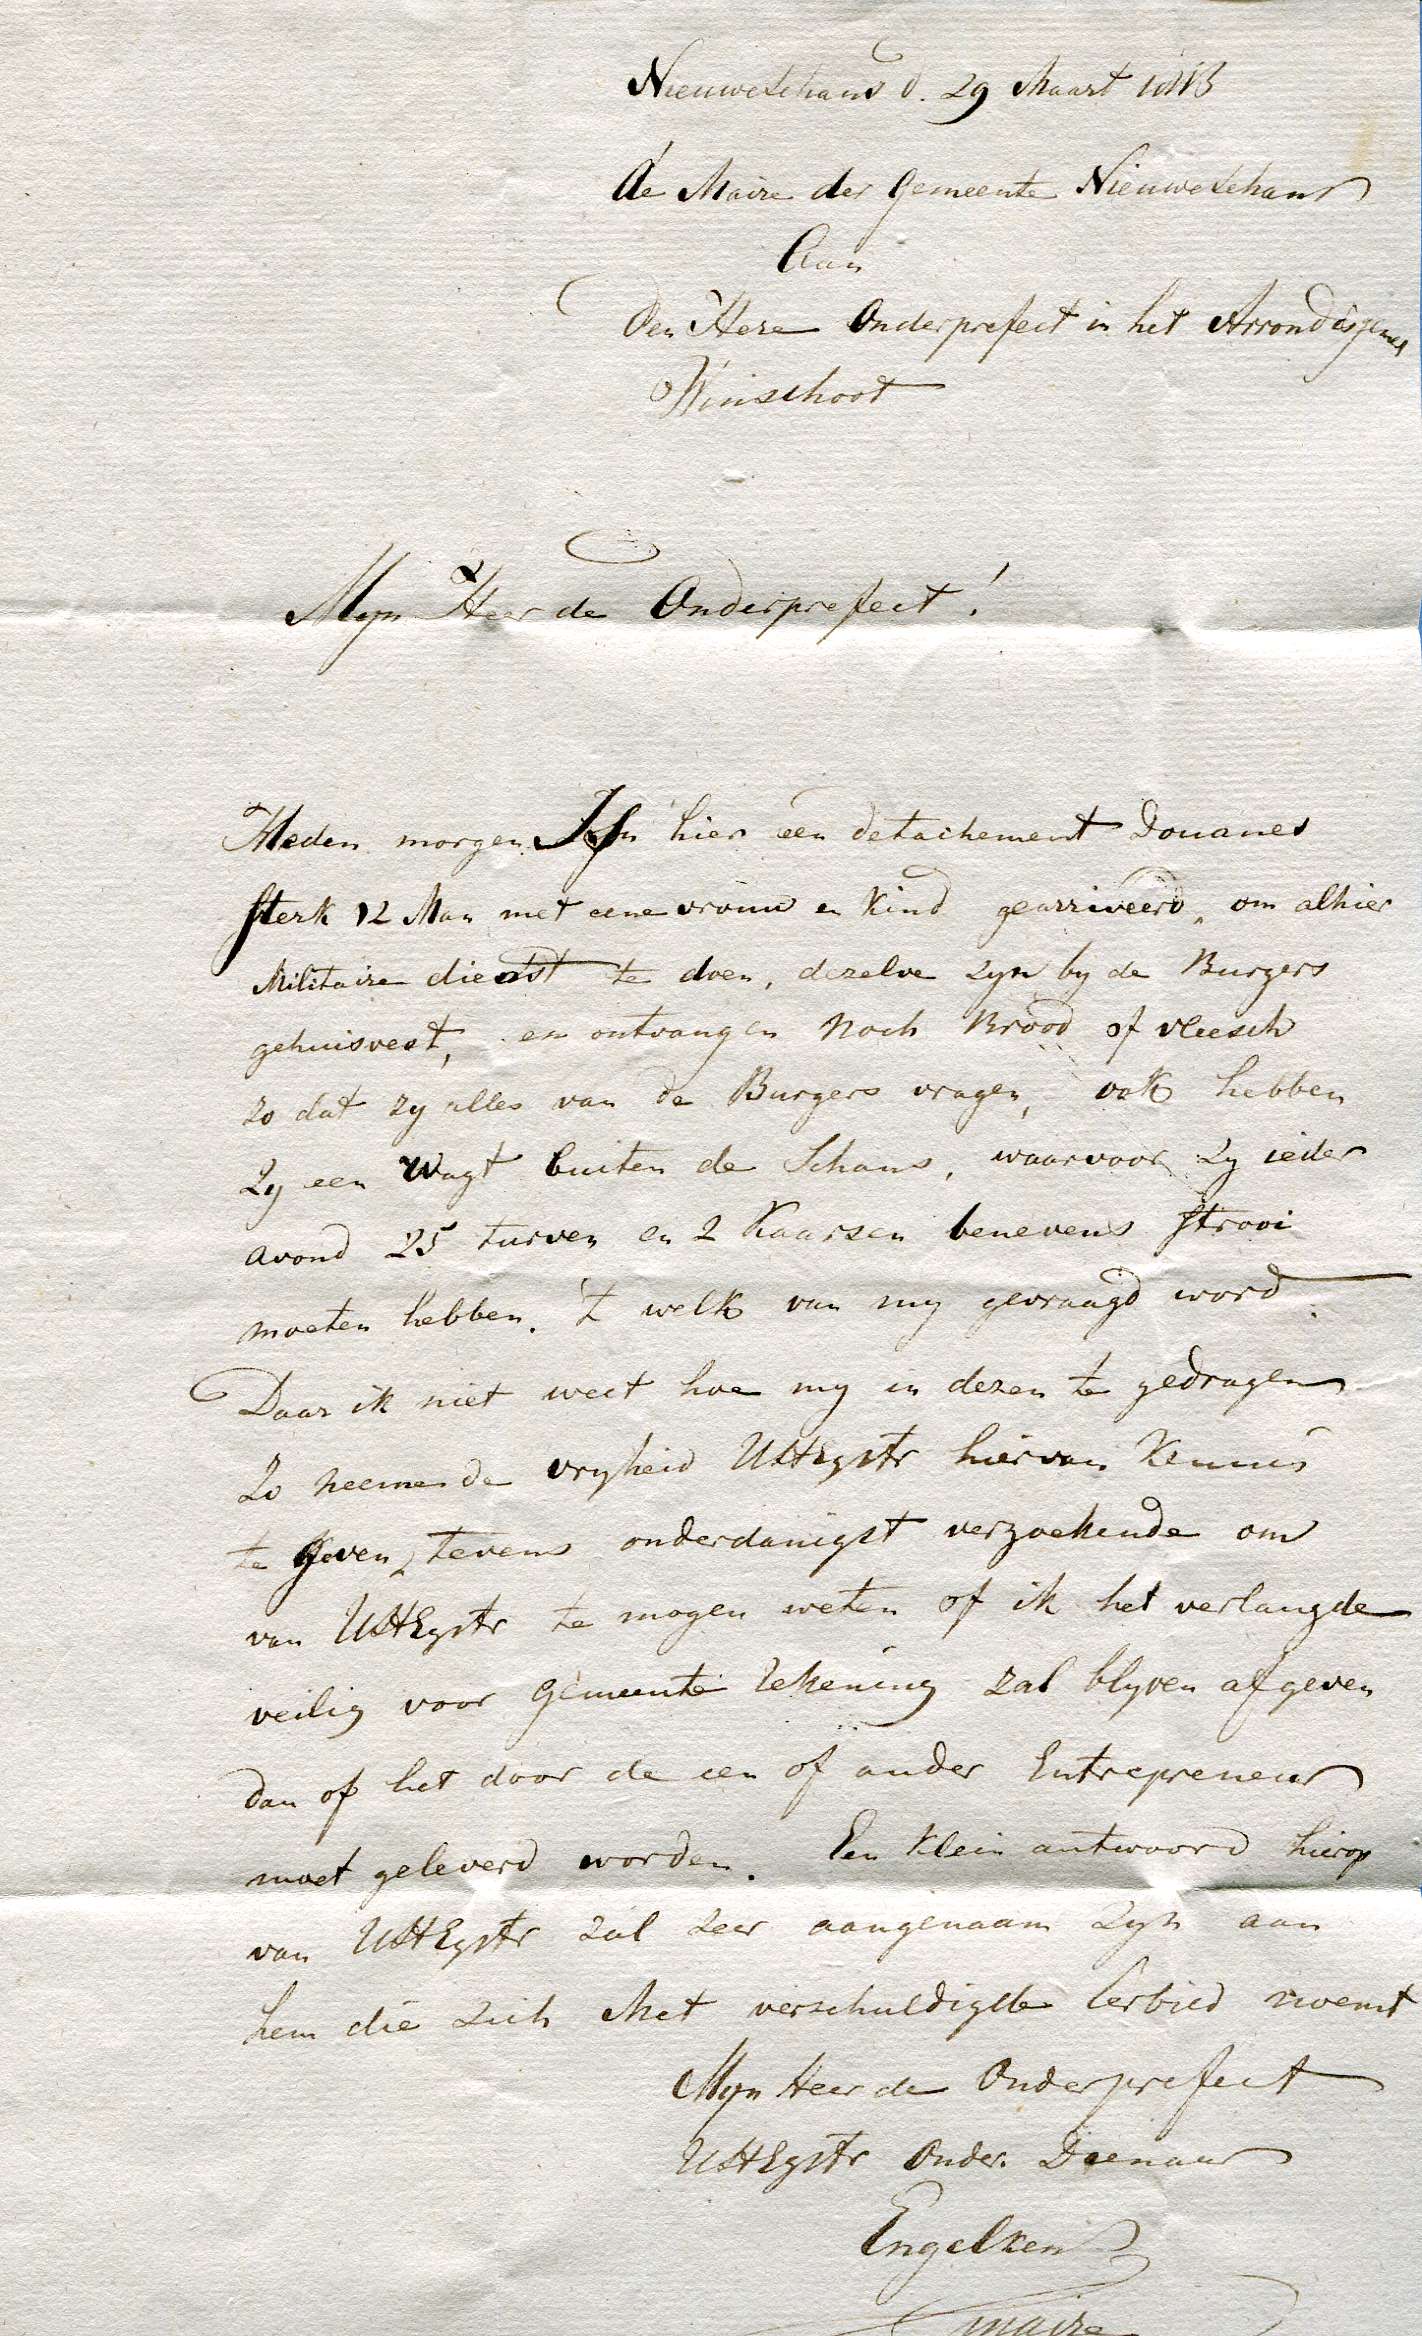 Nieuweschans d. 29 Maart 1813
de Maire der Gemeente Nieuweschans
Aan
Den Here Onderprefect in het Arrondissement
Winschoot
Myn Heer de Onderprefect!
Heden morgen zyn hier een detachement Douanes
sterk 12 Man met eene vrouw en Kind gearriveerd, om alhier
Militaire dienst te doen, dezelve zyn by de Burgers
gehuisvest, en ontvangen noch Brood of vleesch
zo dat zy alles van de Burgers vragen, ook hebben
zy een Wagt buiten de Schans, waarvoor zy ieder
avond 25 turven en 2 Kaarsen benevens strooi
moeten hebben. 't welk van my gevraagd word.
Daar ik niet weet hoe my in dezen te gedragen
Zo neem de vryheid UHEgstr hiervan Kennis
te geven, tevens onderdanigst verzoekende om
van UHEgstr te mogen weten of ik het verlangde
veilig voor Gemeente rekening zal blyven afgeven
dan of het door de een of ander Entrepreneur
moet geleverd worden. Een Klein antwoord hierop
van UHEgstr zal zeer aangenaam zyn aan
hem die zich Met verschuldigde Eerbied noemt
Myn Heer de Onderprefect
UHEgstr Onder. Dienaar
Engelkens
maire